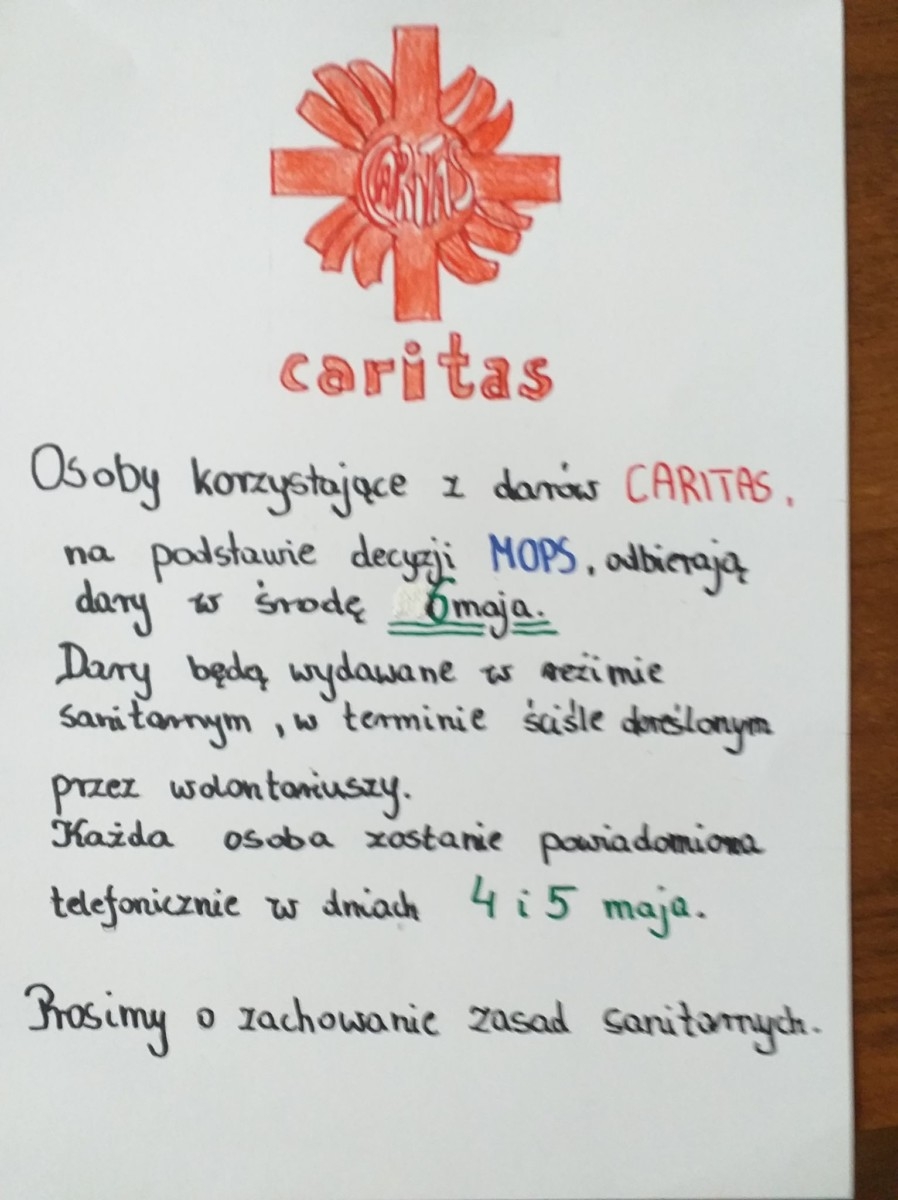 CARITAS
caritas
Osoby korzystające z darów CARITAS,
na podstawie decyzji MOPS, odbierają
dary w środę 6 maja.
Dary będą wydawane w reżimie
sanitarnym, w terminie ściśle określonym
przez wolontariuszy.
Każda osoba zostanie powiadomiona
telefonicznie w dniach 4 i 5 maja.
Prosimy o zachowanie zasad sanitarnych.